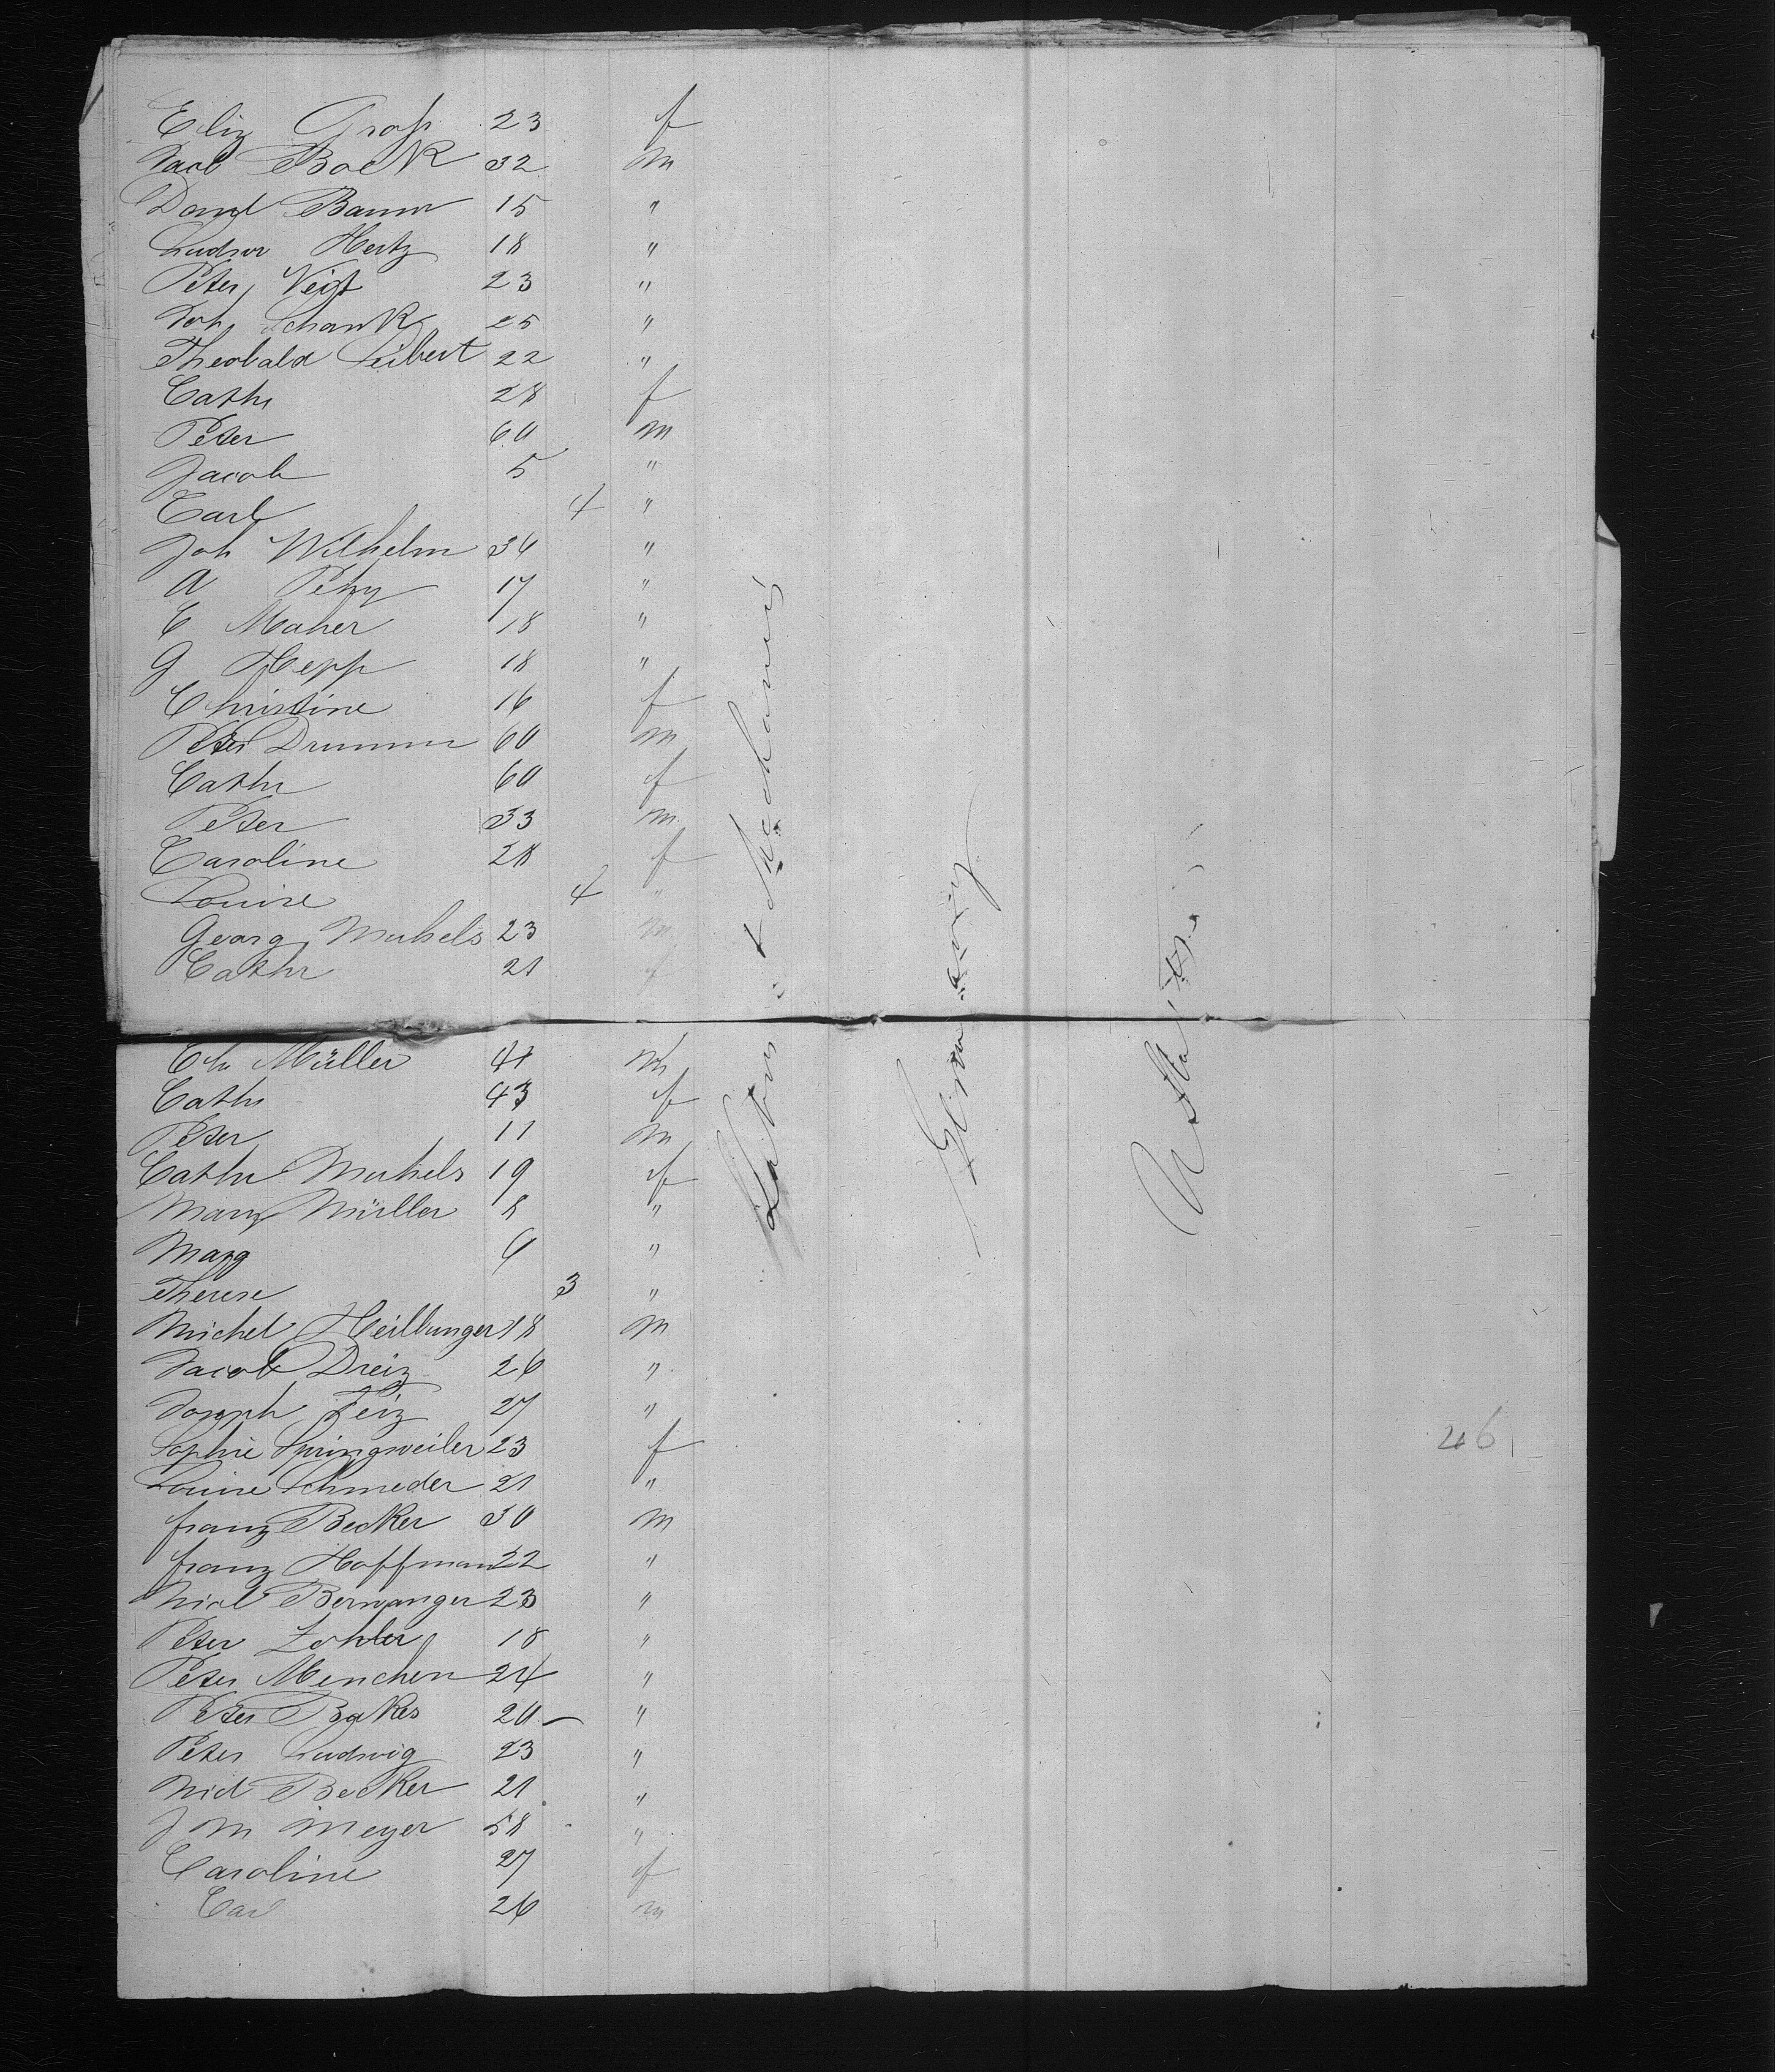 Eliz Groß 23 f
Jacob Bock 32 m
David Baum 15 "
Ludw Hertz 18 "
Peter Veit 23 "
Joh Schank 25 "
Theobald Leibert 22 "
Cathr 28 f
Peter 60 m
Jacob 5 "
Carl 4 "
Joh Wilhelm 34 "
A Petry 17 "
C Maher 18 "
G Hepp 18 "
Christine 16 f
Peter Drumm 60 m
Cathr 60 f
Peter 33 m
Caroline 28 f
Louise 4 "
Georg Michels 23 m
Cathr 21 f
Ch Müller 41 m
Cathr 43 f
Peter 11 m
Cathr Michels 19 f
Mary Müller 8 "
Marg "
Therese 3 "
Michel Heilbunger 18 m
Jacob Dreiz 26 "
Joseph Feiz 27 "
Sophie Springweiler 23 f
Louise Schmeder 21 "
Franz Becker 30 m
Franz Hoffman 22 "
Nicl Berwanger 23 "
Peter Zohler 18 "
Peter Menchen 24 "
Peter Backes 20 "
Peter Ludwig 23 "
Nicl Becker 21 "
J M Meyer 58 "
Caroline 27 f
Carl 26 m
& Mechanics
Germany
U States
46